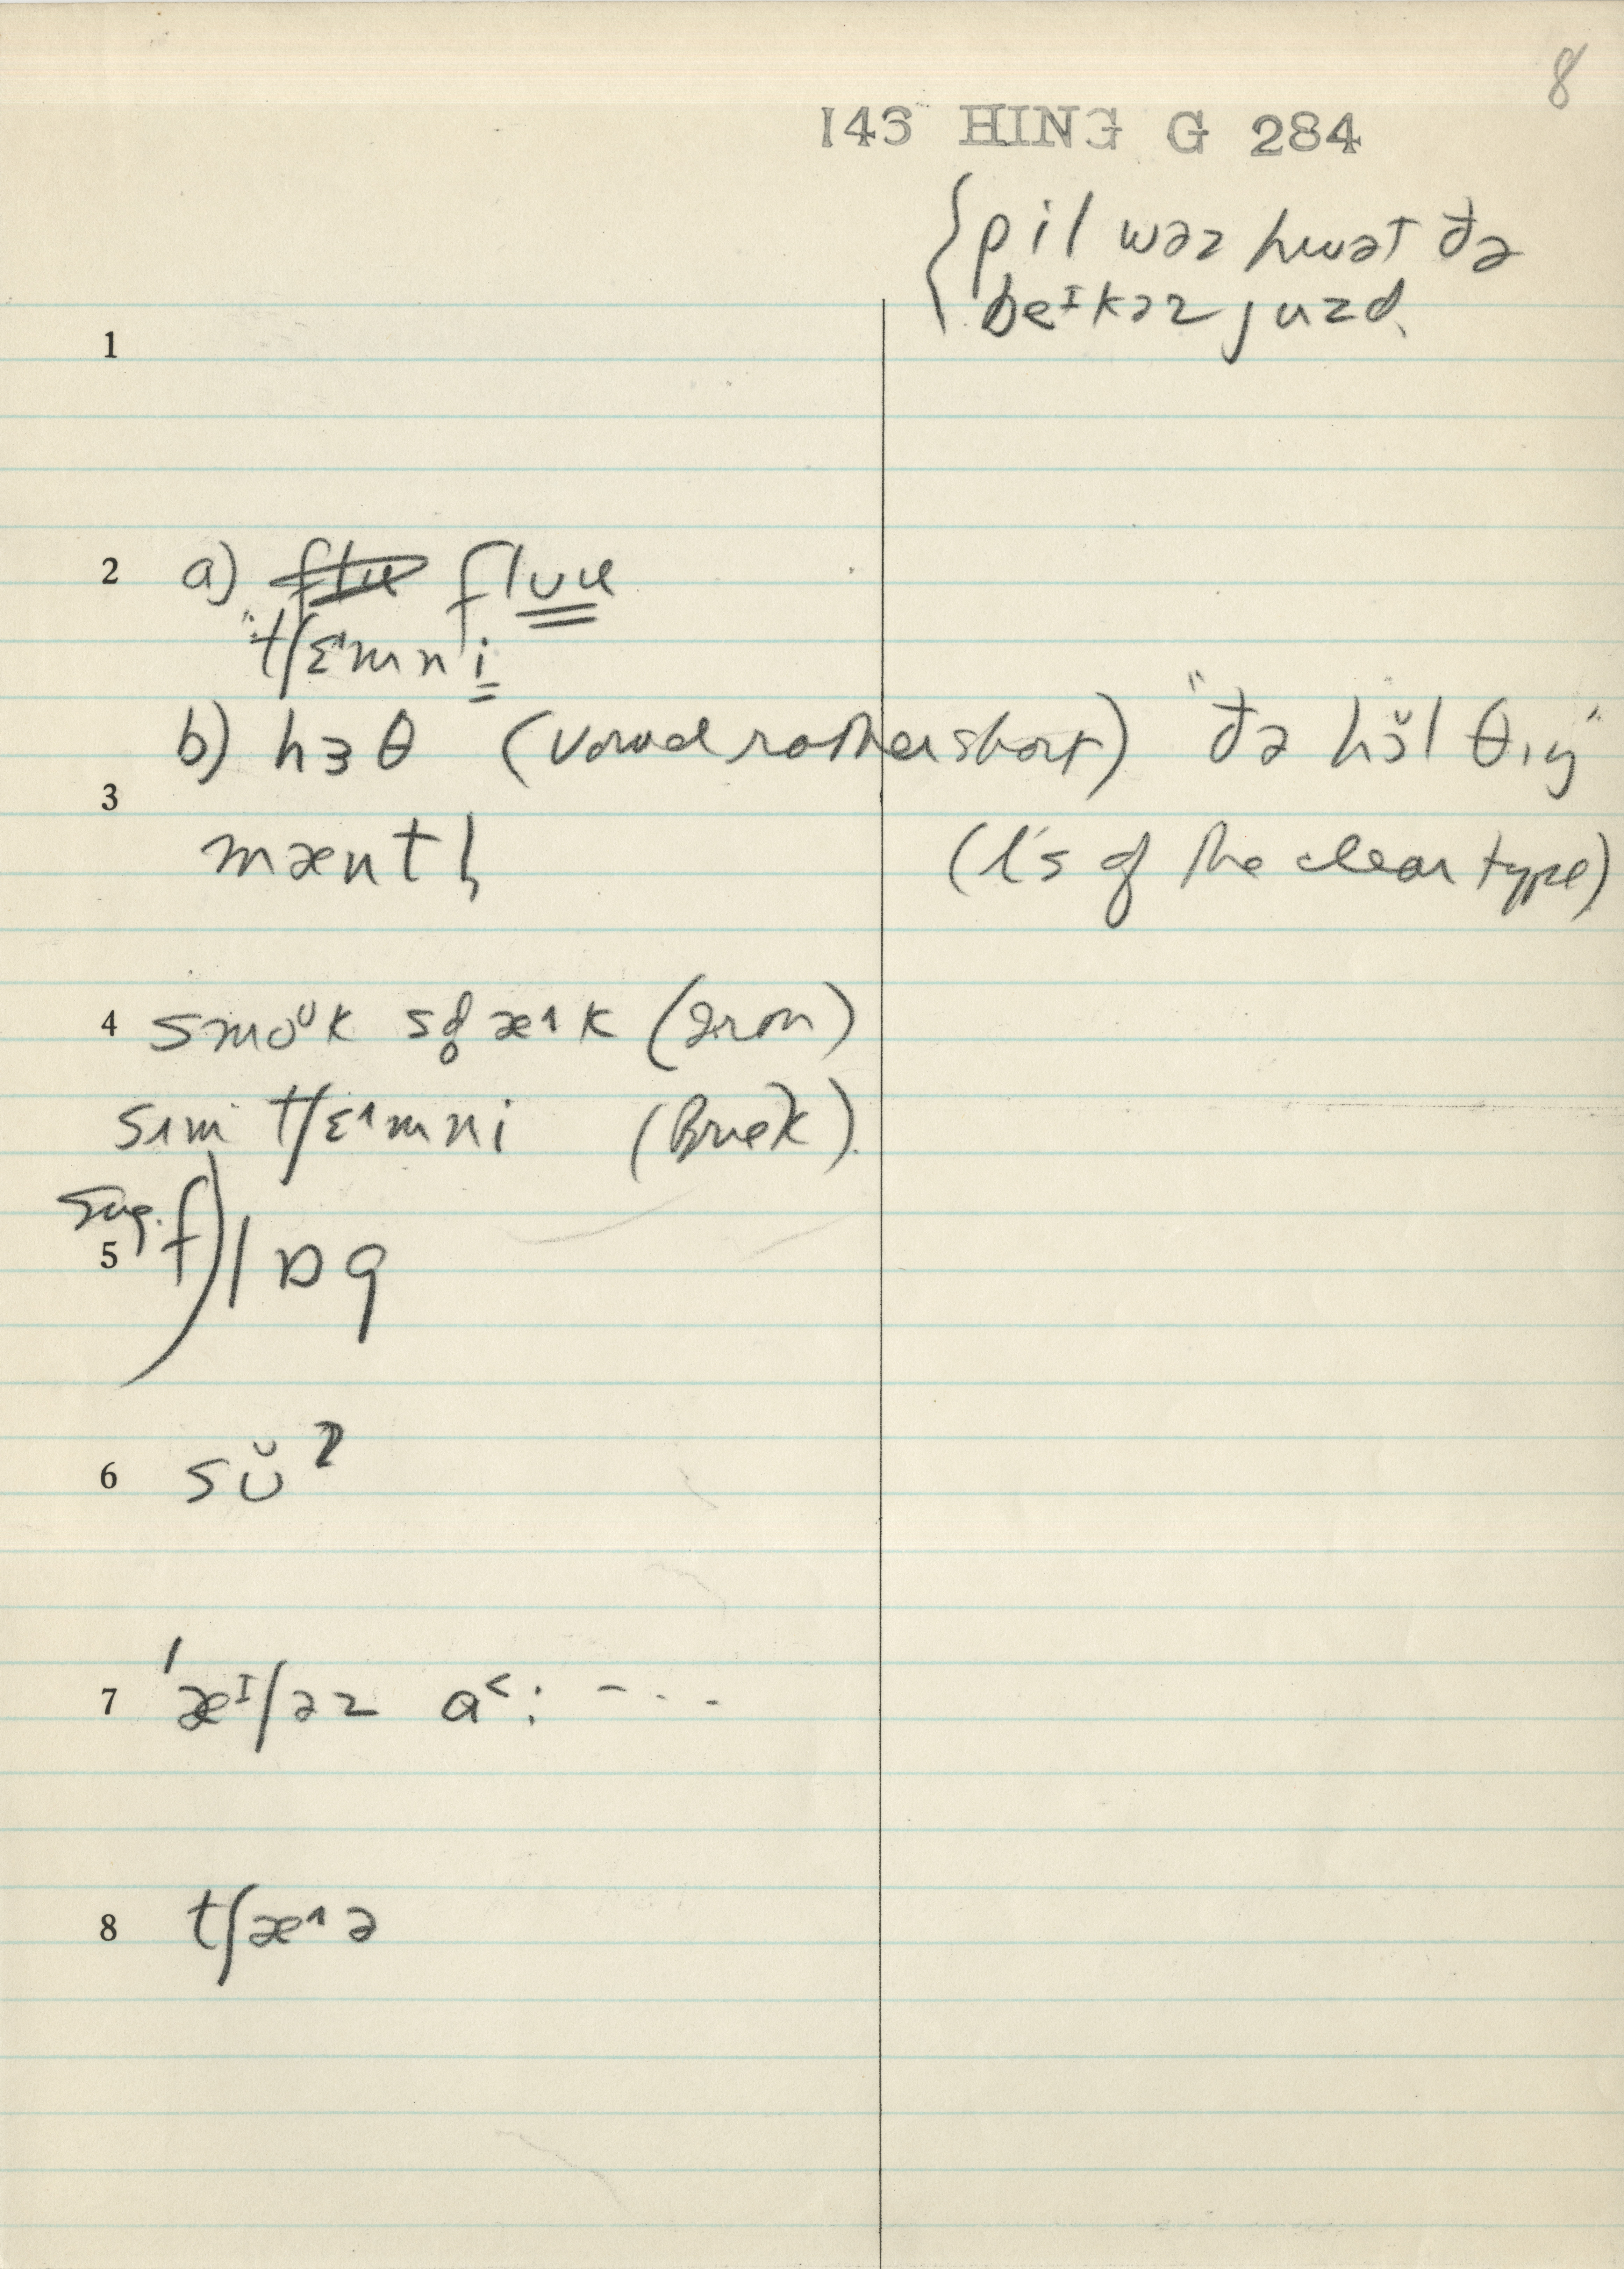 8
143 HING G 284
{ pil wəz hwət ðə
beᴵkəz juzd
1
2 a) flʊu
"tʃɛ˄mni
b) hɜθ (vowel rather short) "ðə hɔ̆l θɪŋ"
3
mæntl̩ (l's of the clear type)
4 smoᵁk sd̥æ˄k (Iron)
sɪm tʃɛ˄mni (Brick)
Sug. f)
5 lɒg
6 sʊ̆ˀ
7 ˈæᴵʃəz a˂: - . . .
8 tʃæ˄ə